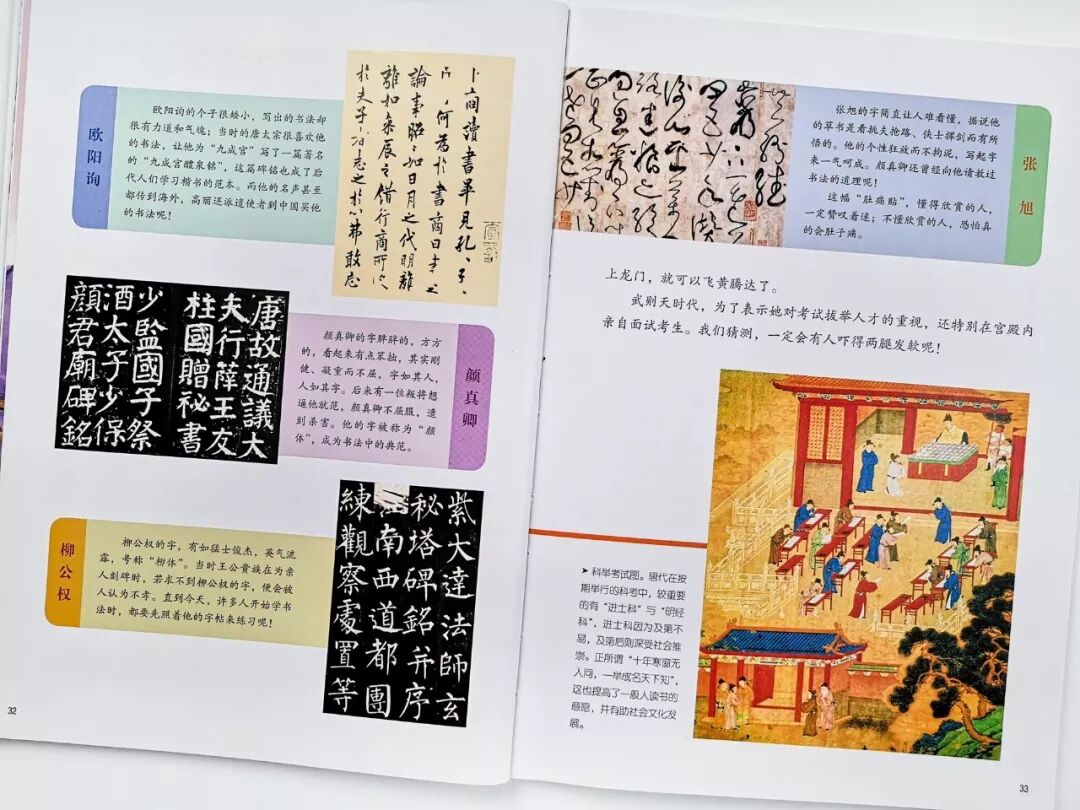 欧阳询
欧阳询的个子很矮小，写出的书法却
很有力道和气魄；当时的唐太宗很喜欢他
的书法，让他为“九成宫”写了一篇著名
的“九成宫醴泉铭”，这篇碑铭也成了后
代人们学习楷书的范本。而他的名声甚至
都传到海外，高丽还派遣使者到中国买他
的书法呢！
卜商讀書畢見孔子
何為於書商曰書之
論事昭昭如日月之代明離
離如參辰之錯行商所
於夫子志之於心弗敢忘
唐故通議大
夫行薛王友
柱國贈祕書
少監國子祭
酒太子少保
顏君廟碑銘
颜真卿
颜真卿的字胖胖的，方方
的，看起来有点笨拙，其实刚
健、凝重而不屈，字如其人，
人如其字。后来有一位叛将想
逼他就范，颜真卿不屈服，遭
到杀害。他的字被称为“颜
体”，成为书法中的典范。
柳公权
柳公权的字，有如猛士俊杰，英气流
露，号称“柳体”。当时王公贵族在为亲
人刻碑时，若求不到柳公权的字，便会被
人认为不孝。直到今天，许多人开始学书
法时，都要先照着他的字帖来练习呢！
大達法師玄
秘塔碑銘并序
江南西道都團
練觀察處置等
32
张旭
张旭的字简直让人难看懂，据说他
的草书是看挑夫抢路、侠士挥剑而有所
悟的。他的个性狂放而不拘泥，写起字
来一气呵成。颜真卿还曾经向他请教过
书法的道理呢！
这幅“肚痛贴”，懂得欣赏的人，
一定赞叹着迷；不懂欣赏的人，恐怕真
的会肚子痛。
上龙门，就可以飞黄腾达了。
武则天时代，为了表示她对考试拔举人才的重视，还特别在宫殿内
亲自面试考生。我们猜测，一定会有人吓得两腿发软呢！
➤ 科举考试图。唐代在按
期举行的科考中，较重要
的有“进士科”与“明经
科”，进士科因为及第不
易，及第后则深受社会推
崇。正所谓“十年寒窗无
人问，一举成名天下知”，
这也提高了一般人读书的
意愿，并有助社会文化发
展。
33